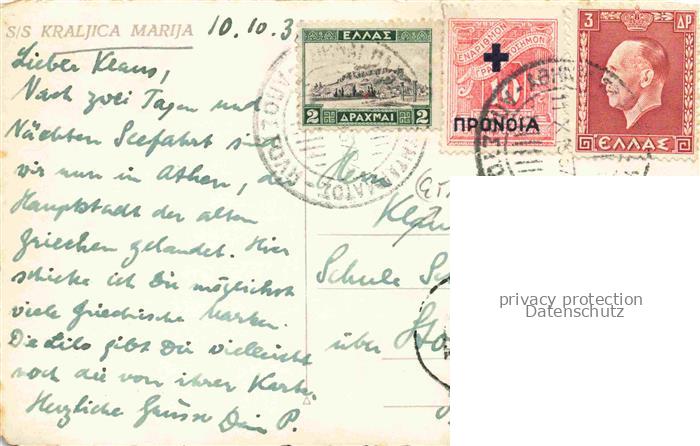 S/S KRALJICA MARIJA 10.10.3
Lieber Klaus,
Nach zwei Tagen und
Nächten Seefahrt si
wir nun in Athen, de
Hauptstadt der alten
Griechen gelandet. Hier
schicke ich Dir möglichst
viele griechische Marken.
Die Lilo gibt Dir vielleicht
noch die von ihrer Karte.
Herzliche Grüsse Dein P.
ΕΛΛΑΣ
2 ΔΡΑΧΜΑΙ 2
ΕΝΑΡΙΘΜΟΝ
ΓΡΑΜΜΑΤΟΣΗΜΟΝ
10
ΠΡΟΝΟΙΑ
3 ΔΡ
ΕΛΛΑΣ
Herrn
Klau
Schule
über
privacy protection
Datenschutz